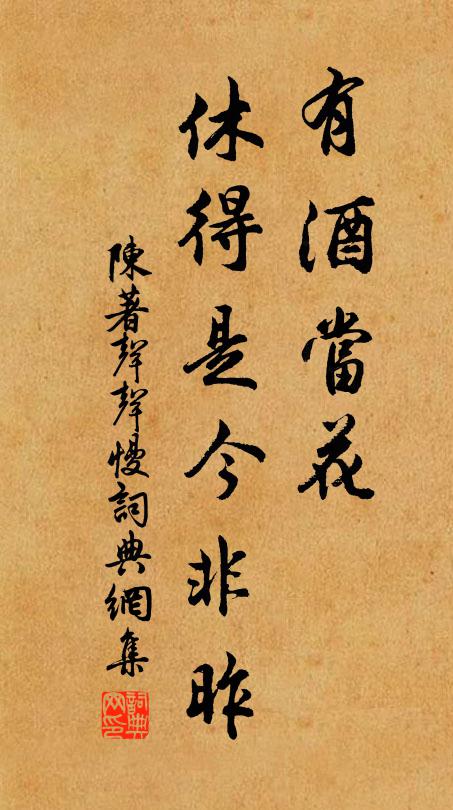 有酒當花
休得是今非昨
陳著聲聲慢詞典網集
詞典網印